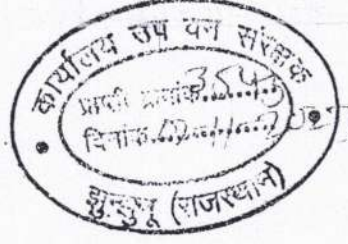 कार्यालय उप वन संरक्षक
प्राप्ती क्रमांक 3545
दिनांक
झुन्झुनू (राजस्थान)